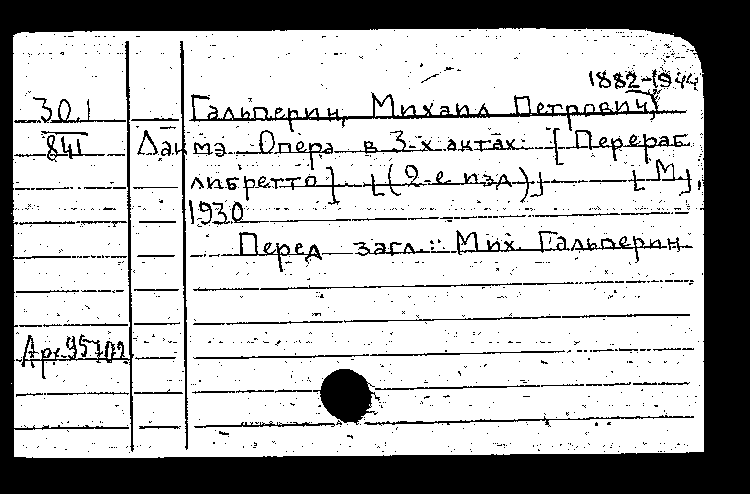 1882-1944
30.1 Гальперин, Михаил Петрович,
841 Лакмэ. Опера в 3-х актах. [Перераб.
либретто]. [(2-е изд.)] [М.],
1930
Перед загл.: Мих. Гальперин
Арх.95702